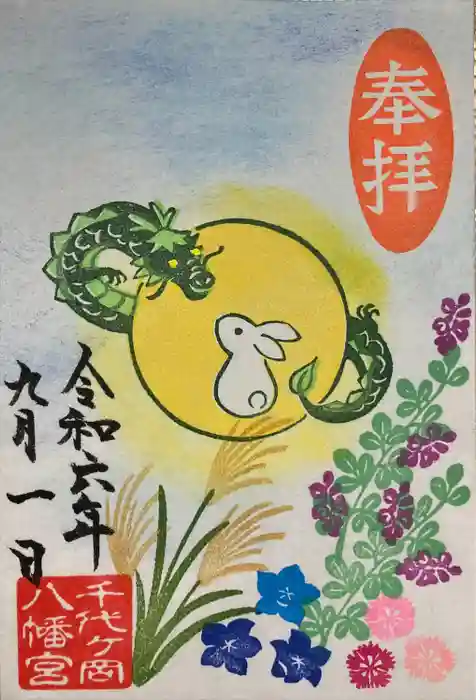 奉拝
令和六年
九月一日
千代ヶ岡
八幡宮